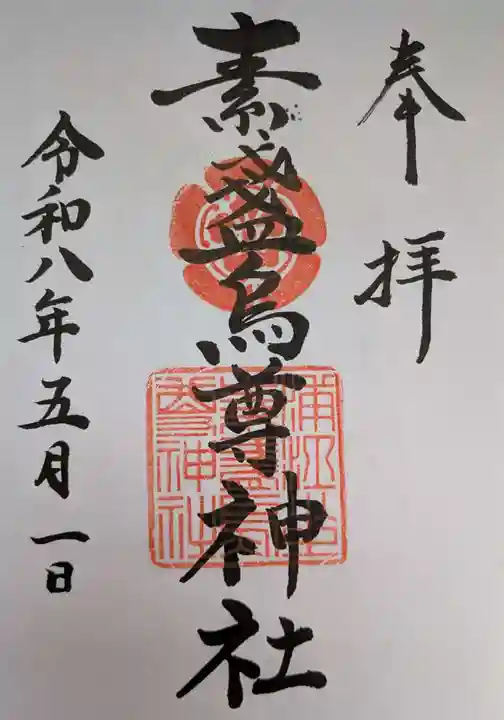 奉拝
素盞烏尊神社
令和八年五月一日